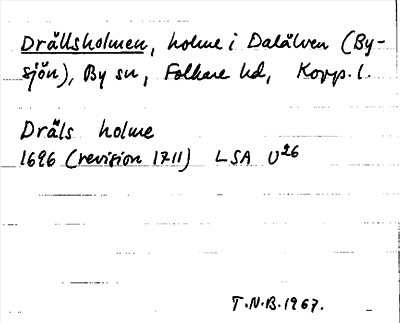 Drällsholmen, holme i Dalälven (By-
sjön), By sn, Folkare hd, Kopp. l.
Dräls holme
1696 (revision 1711) LSA U26
T.N.B. 1967.